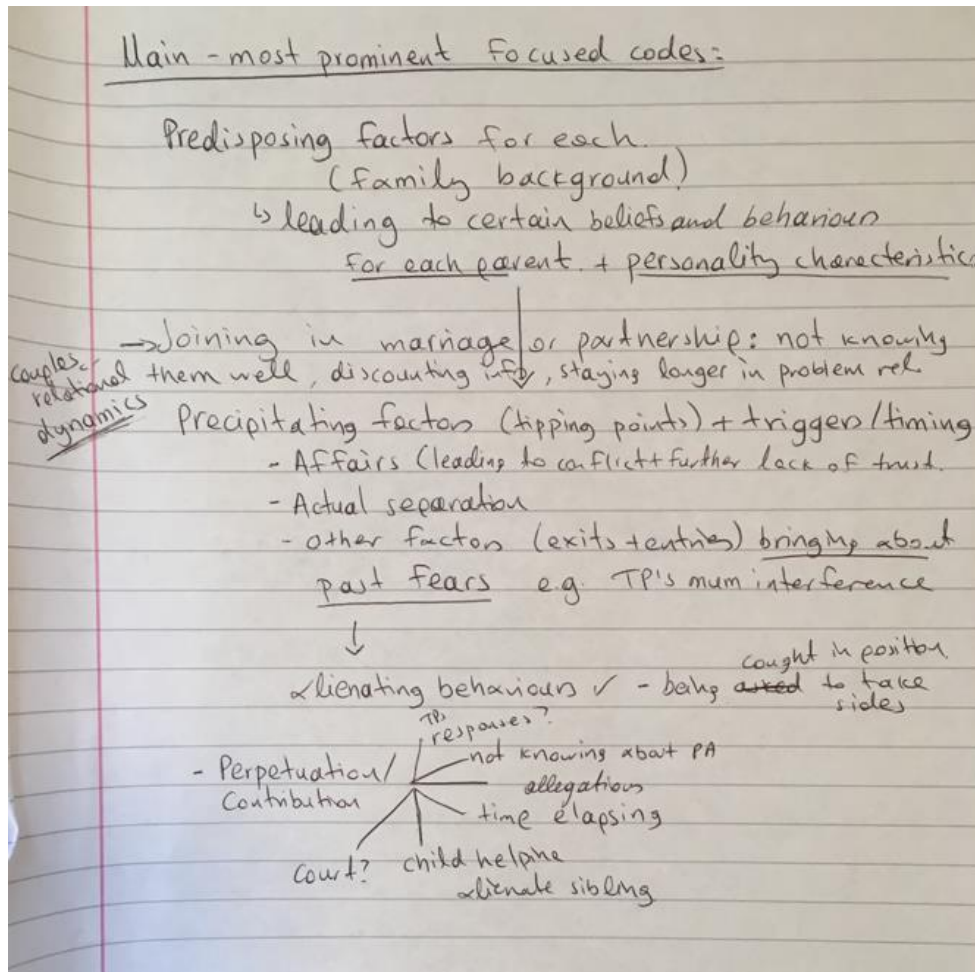 Main - most prominent focused codes:
Predisposing factors for each
(family background)
↳ leading to certain beliefs and behaviours
for each parent + personality characteristic
→ Joining in marriage or partnership: not knowing
them well, discounting info, staying longer in problem rel.
couples-
relational
dynamics
Precipitating factors (tipping points) + triggers/timing
- Affairs (leading to conflict + further lack of trust.
- Actual separation
- other factors (exits + entries) bringing about
past fears e.g. TP's mum interference
↓
alienating behaviours ✓ - being asked to take
caught in position
sides
- Perpetuation/
Contribution
TPs
responses?
not knowing about PA
allegations
time elapsing
child helping
alienate sibling
Court?